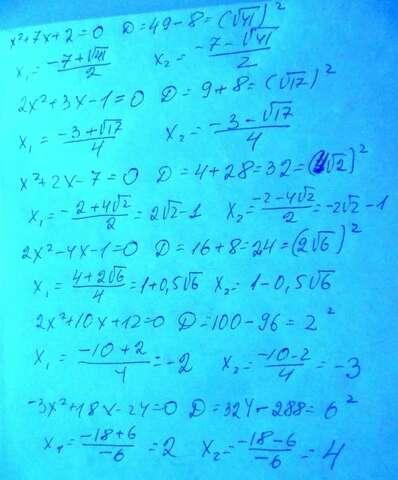 x²+7x+2=0 D=49-8=(√41)²
x₁=(-7+√41)/2 x₂=(-7-√41)/2
2x²+3x-1=0 D=9+8=(√17)²
x₁=(-3+√17)/4 x₂=(-3-√17)/4
x²+2x-7=0 D=4+28=32=(4√2)²
x₁=-(2+4√2)/2=2√2-1 x₂=(-2-4√2)/2=-2√2-1
2x²-4x-1=0 D=16+8=24=(2√6)²
x₁=(4+2√6)/4=1+0,5√6 x₂=1-0,5√6
2x²+10x+12=0 D=100-96=2²
x₁=(-10+2)/4=-2 x₂=(-10-2)/4=-3
-3x²+18x-24=0 D=324-288=6²
x₁=(-18+6)/-6=2 x₂=(-18-6)/-6=4